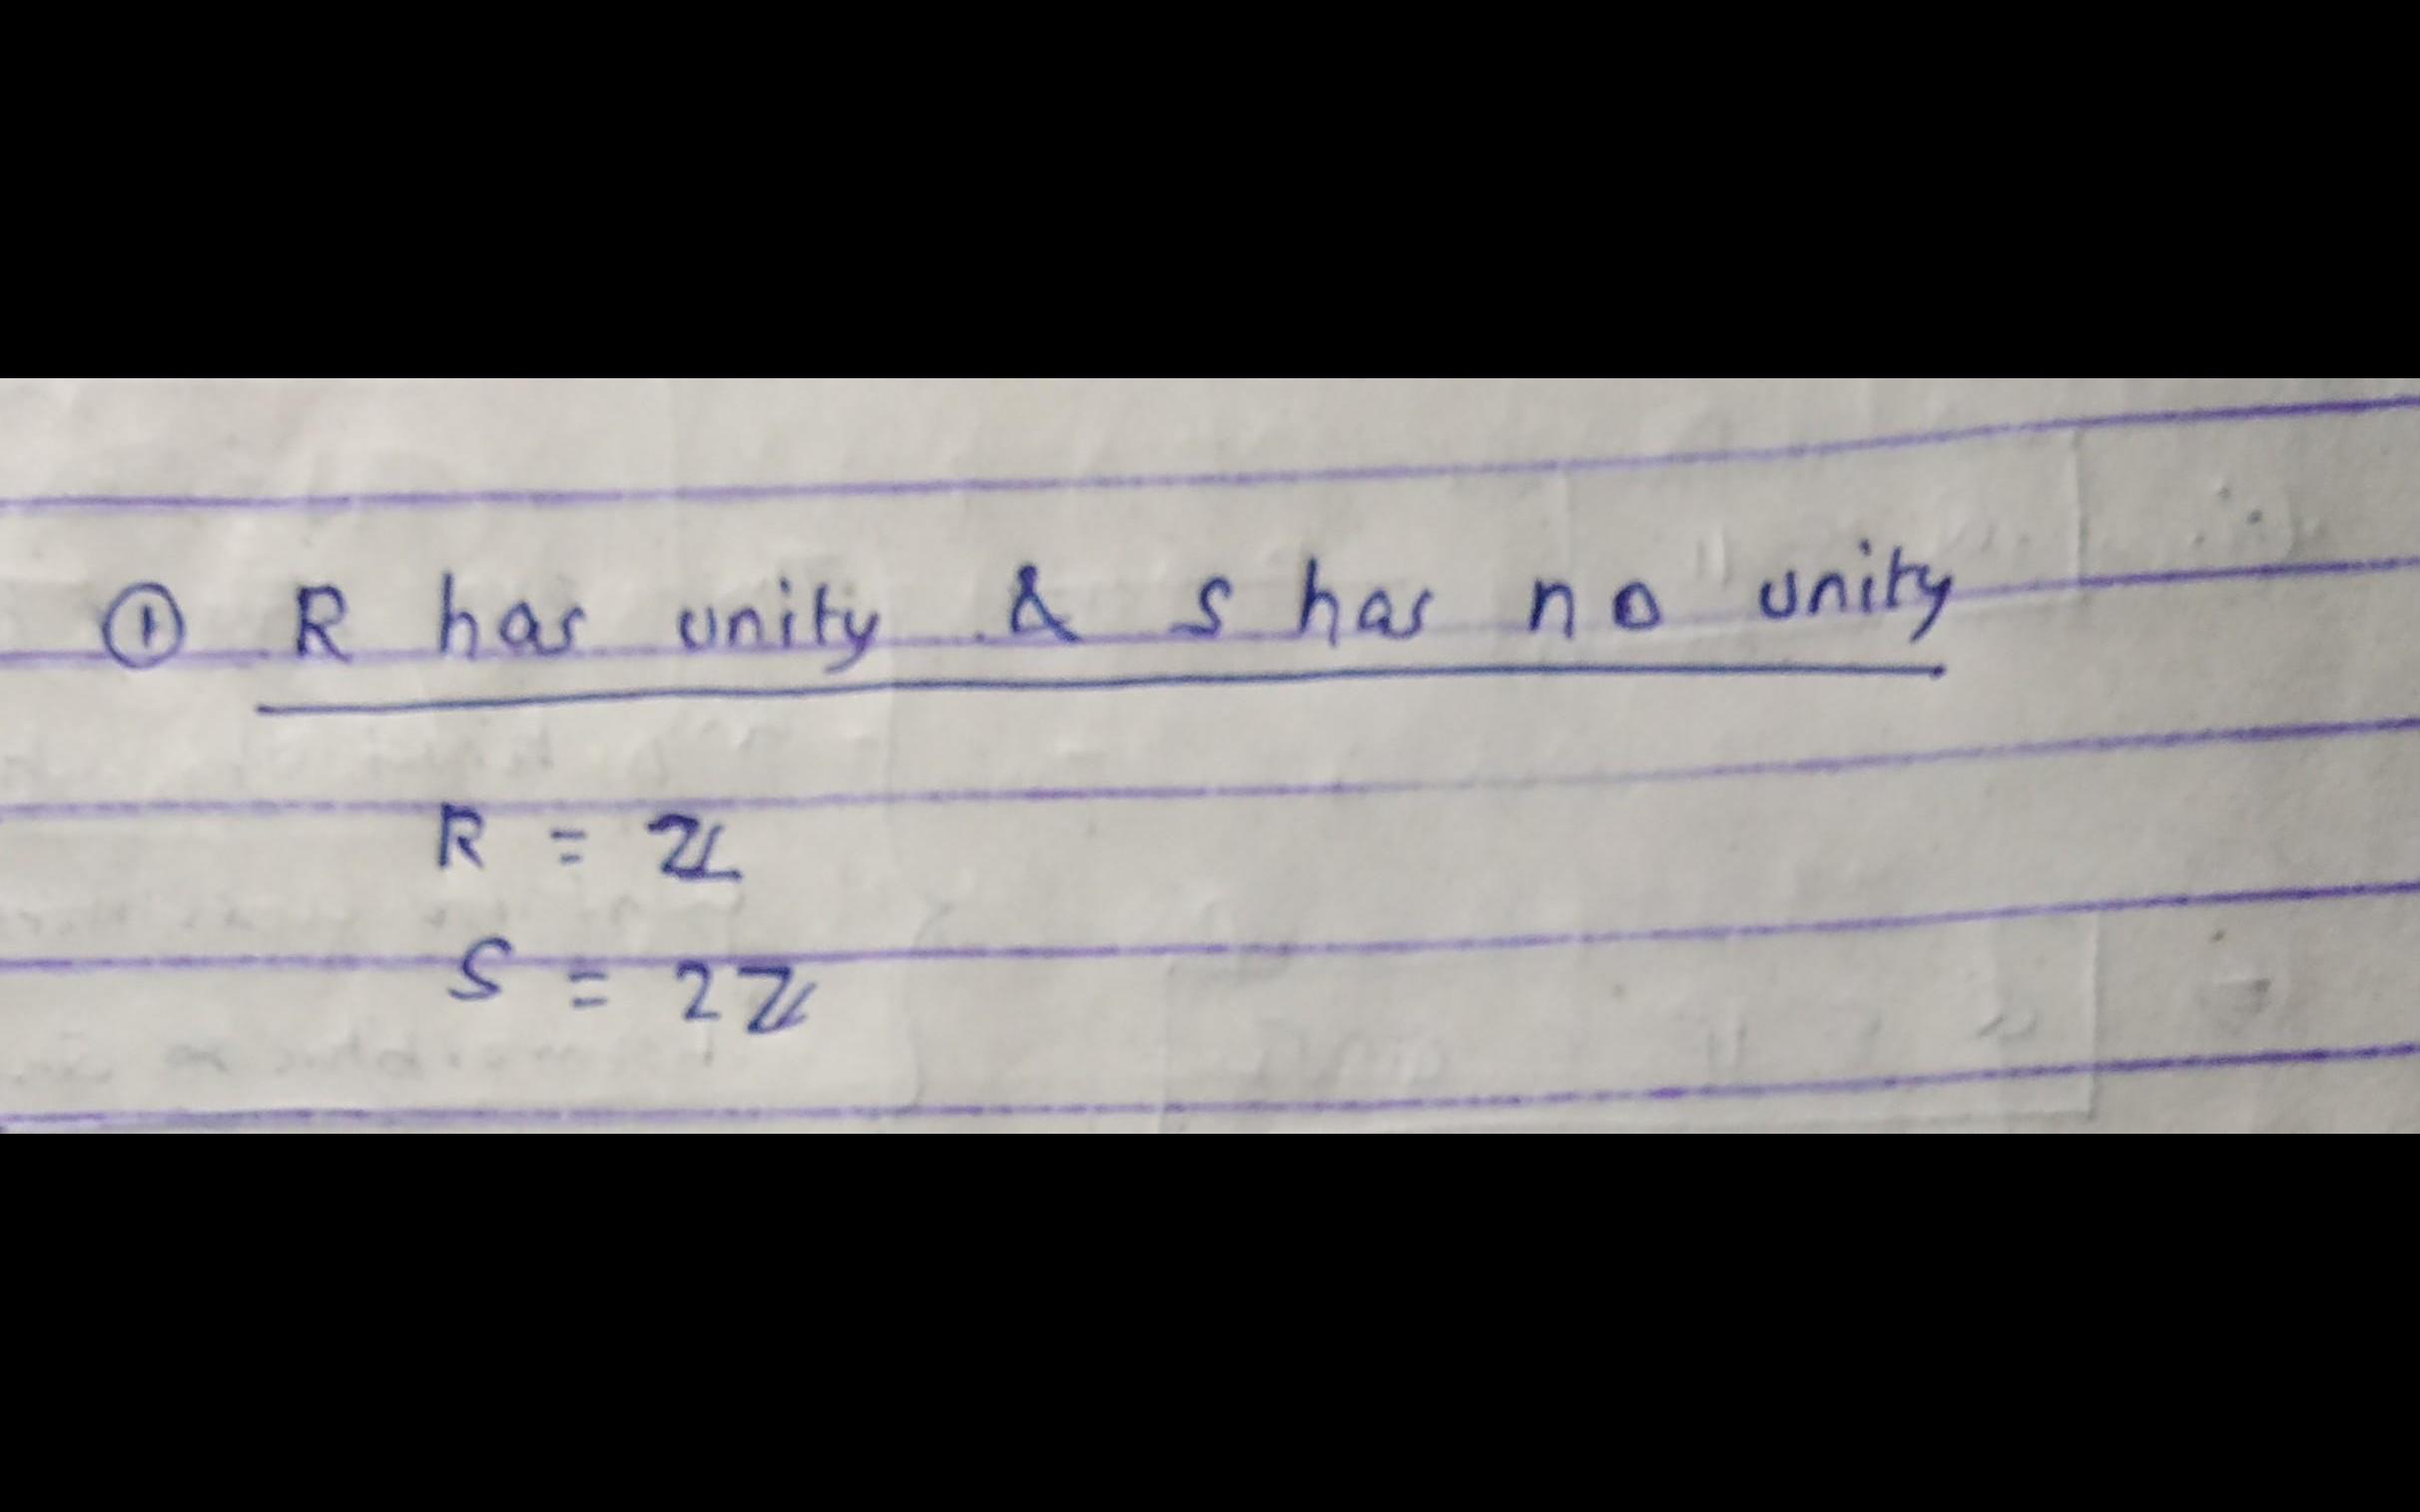 ① R has unity & S has no unity
R = ℤ
S = 2ℤ